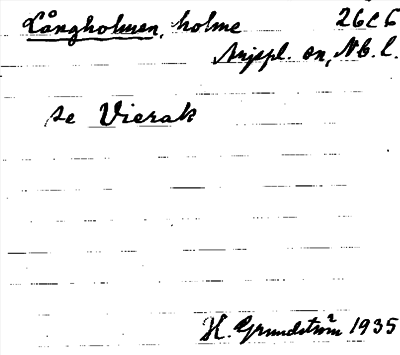 Långholmen, holme 26C6
Arjepl. sn, Nb. l.
se Vierak
H. Grundström 1935